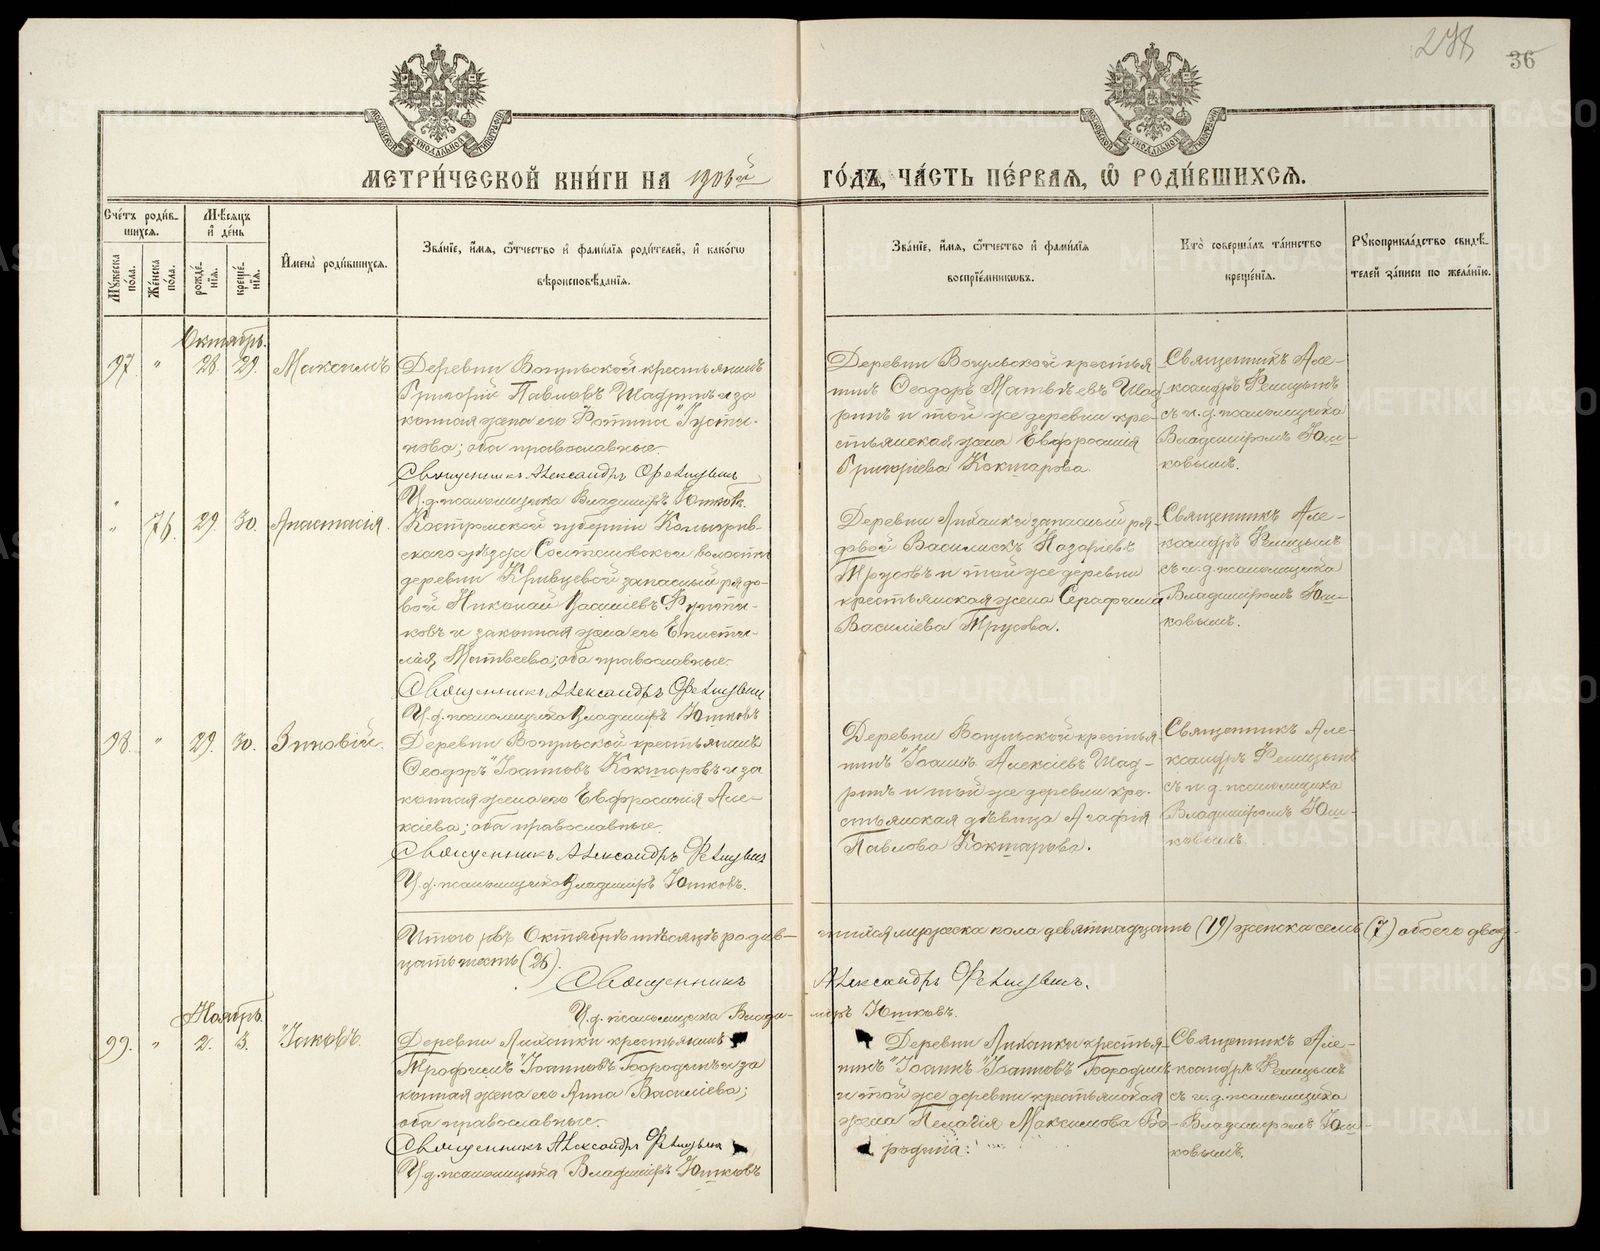 298
36
МЕТРИ́ЧЕСКОЙ КНИ́ГИ НА 1906ой ГО́ДЪ, ЧА́СТЬ ПЕ́РВАЯ, Ѿ РОДИ́ВШИХСЯ.
Сче́тъ роди́вшихся.
Му́жеска по́ла.
Же́нска по́ла.
Мѣ́сяцъ и де́нь
рожде́нія.
креще́нія.
Имена̀ роди́вшихся.
Зва́ніе, и́мя, о́тчество и фами́лія роди́телей, и како́гѡ
вѣроисповѣ́данія.
Зва́ніе, и́мя, о́тчество и фами́лія
воспріе́мниковъ.
Кто̀ соверша́лъ та́инство
креще́нія.
Рукоприкла́дство свидѣ́-
телей за́писи по жела́нію.
Октябрь.
97. " 28. 29. Максимъ
Деревни Вогульской крестьянинъ
Григорій Павловъ Шадринъ и за
конная жена его Фотина Густи-
нова; оба православные.
Священникъ Александръ Фелицынъ
И. д. псаломщика Владиміръ Юшковъ.
Деревни Вогульской крестья-
нинъ Ѳеодоръ Матвѣевъ Шад-
ринъ и той же деревни кре-
стьянская жена Евфросинія
Григоріева Кокшарова.
Священникъ Але-
ксандръ Фелицынъ
съ и. д. псаломщика
Владиміромъ Юш-
ковымъ.
" 76. 29. 30. Анастасія.
Костромской губерніи Кологрив-
скаго уѣзда Солтановской волости
деревни Кривцевой запасный рядо-
вой Николай Василіевъ
и законная жена его Еписти-
мія Матвеева; оба православные.
Священникъ Александръ Фелицынъ
И. д. псаломщика Владиміръ Юшковъ
Деревни Лиханки запасный ря-
довой Василискъ Назаріевъ
Трусовъ и той же деревни
крестьянская жена Серафима
Василіева Трусова.
Священникъ Але-
ксандръ Фелицынъ
съ и. д. псаломщика
Владиміромъ Юш-
ковымъ.
98. " 29. 30. Зиновій.
Деревни Вогульской крестьянинъ
Ѳеодоръ Іоанновъ Кокшаровъ и за
конная жена его Евфросинія Але-
ксіева; оба православные.
Священникъ Александръ Фелицынъ
И. д. псаломщика Владиміръ Юшковъ.
Деревни Вогульской крестья-
нинъ Іоаннъ Алексіевъ Шад-
ринъ и той же деревни кре-
стьянская дѣвица Агафія
Павлова Кокшарова.
Священникъ Але-
ксандръ Фелицынъ
съ и. д. псаломщика
Владиміромъ Юш-
ковымъ.
Итого въ Октябрѣ мѣсяцѣ родив-
шихся мужеска пола девятнадцать (19) женска семь (7) обоего двад-
цать шесть (26).
Священникъ Александръ Фелицынъ.
И. д. псаломщика Влади-
міръ Юшковъ.
Ноябрь.
99. " 2. 3. Іаковъ.
Деревни Лиханки крестьянинъ
Трофимъ Іоанновъ Бородинъ и за
конная жена его Анна Василіева;
оба православные.
Священникъ Александръ Фелицынъ
И. д. псаломщика Владиміръ Юшковъ
Деревни Лиханки крестья-
нинъ Іоаннъ Іоанновъ Бородинъ
и той же деревни крестьянская
жена Пелагія Максимова Бо-
родина.
Священникъ Але-
ксандръ Фелицынъ
съ и. д. псаломщика
Владиміромъ Юш-
ковымъ.